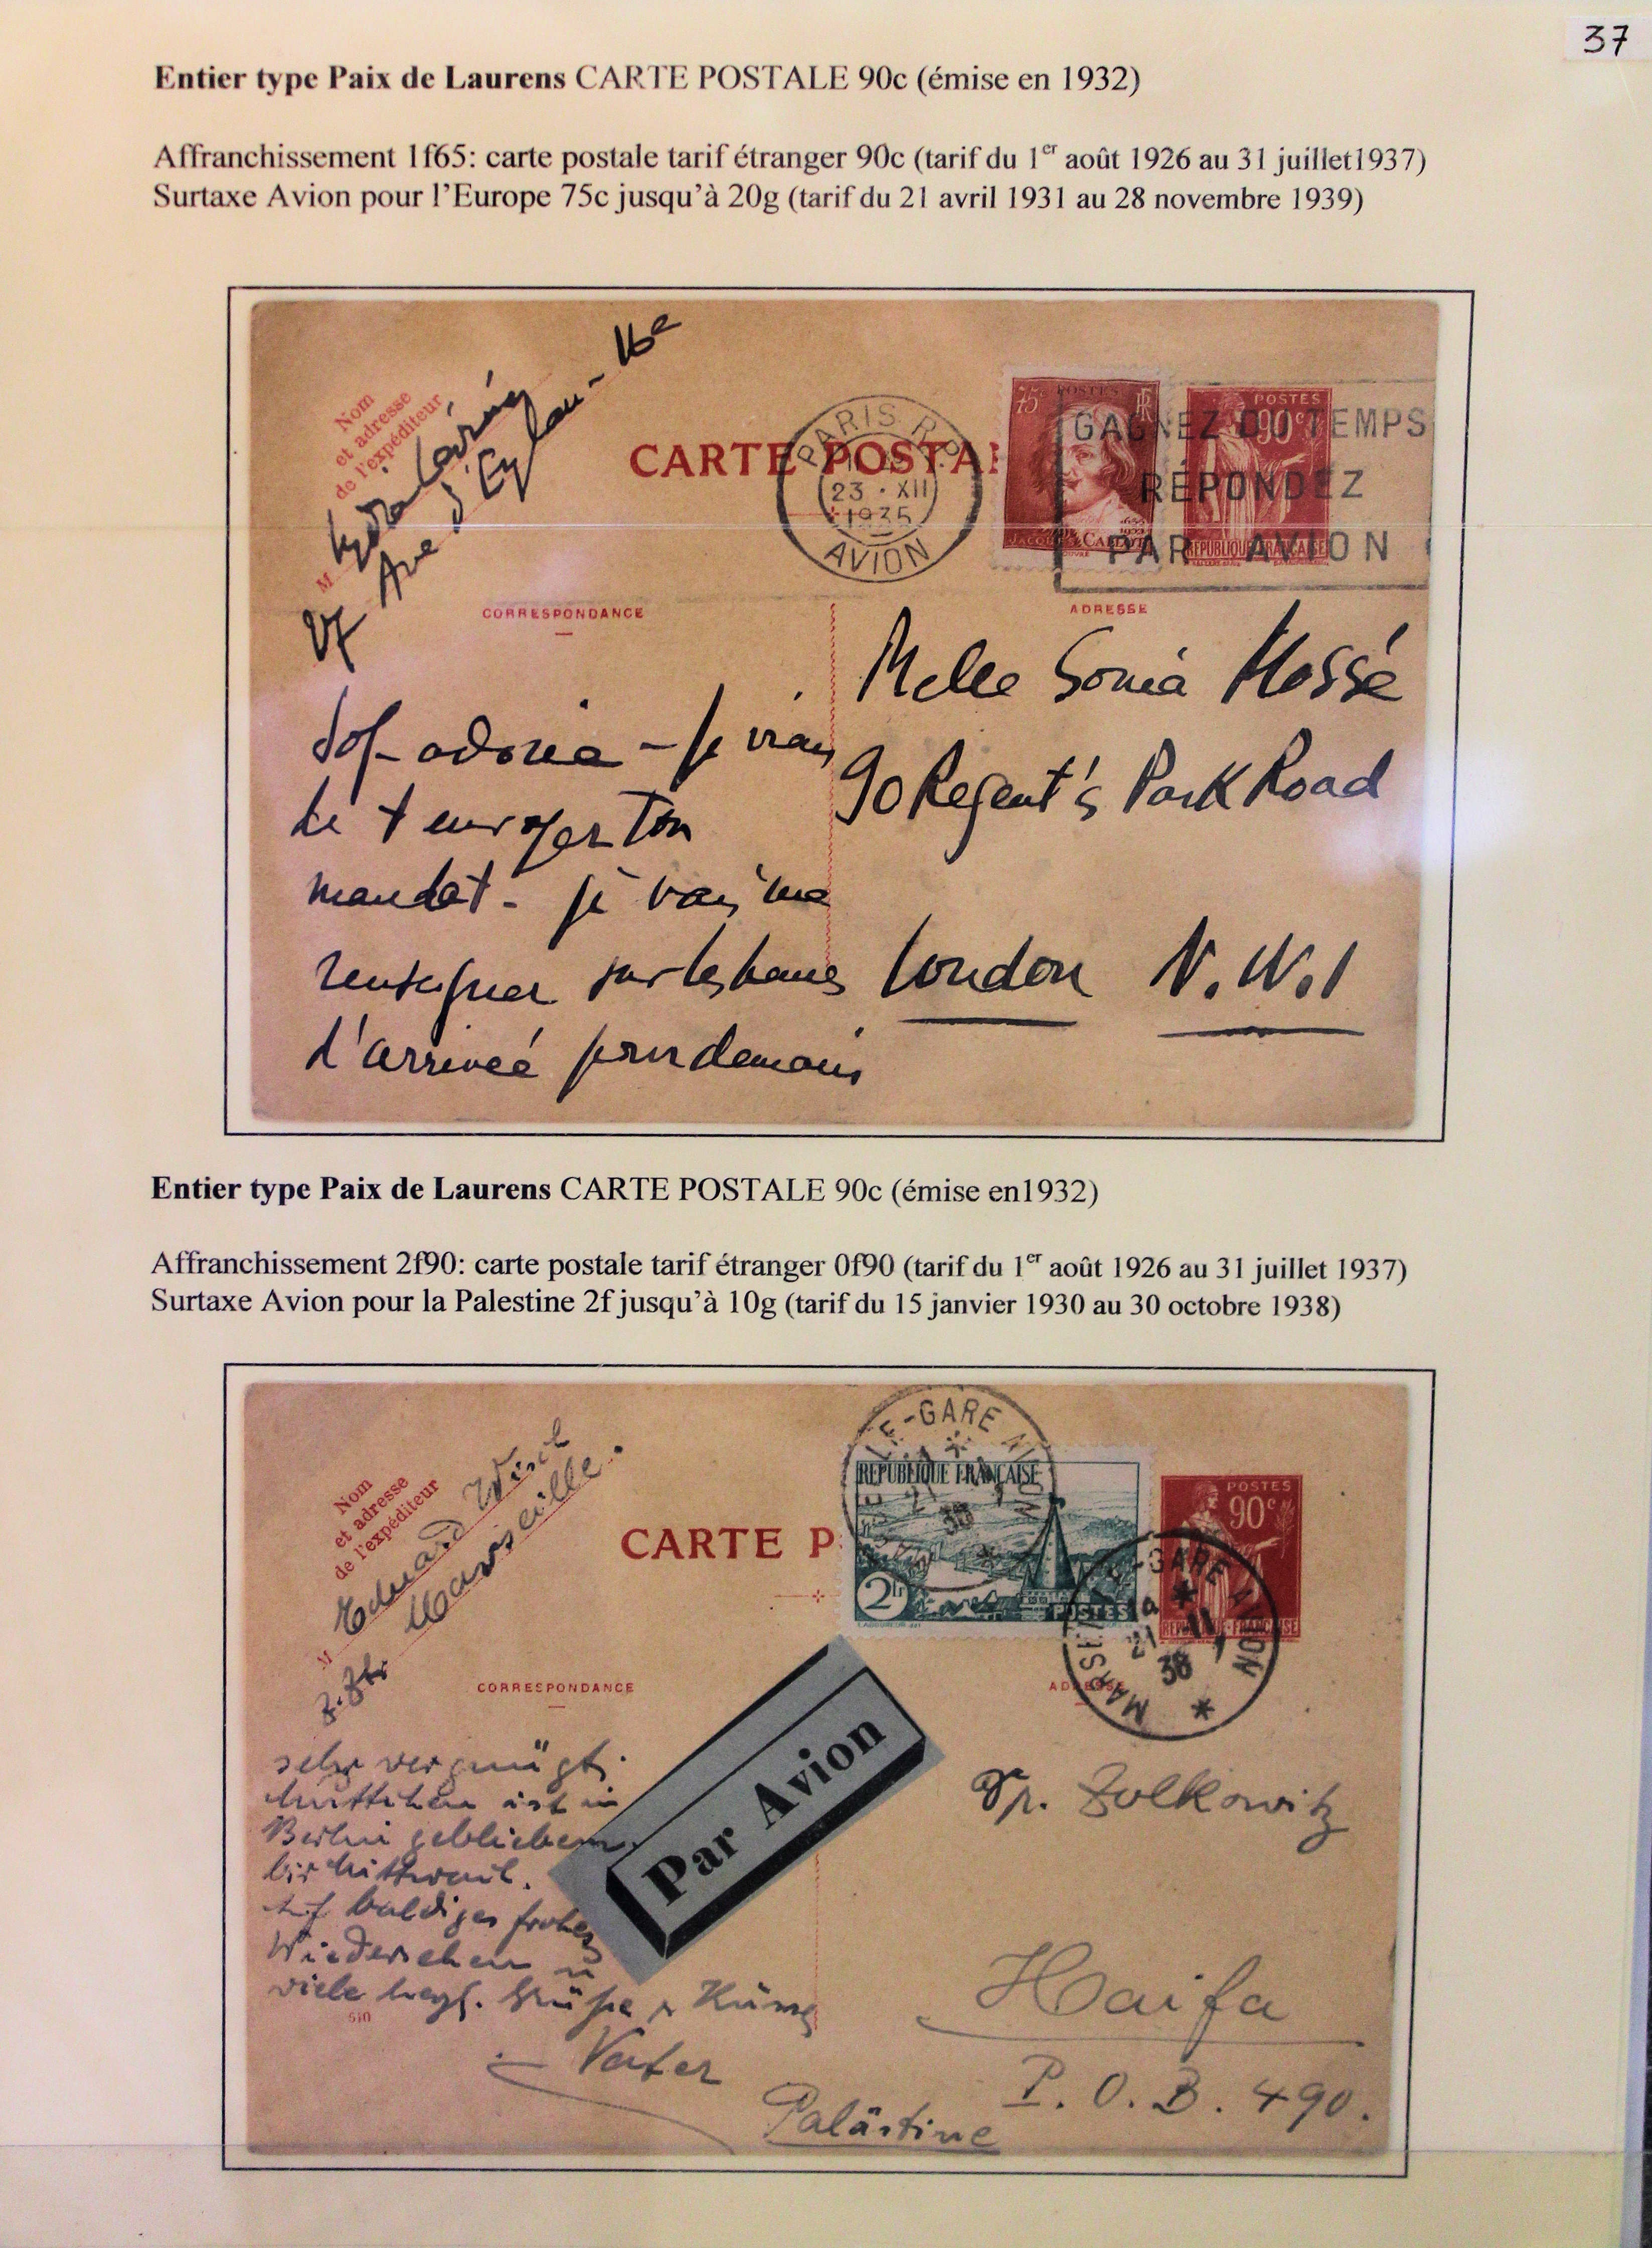 37
Entier type Paix de Laurens CARTE POSTALE 90c (émise en 1932)
Affranchissement 1f65: carte postale tarif étranger 90c (tarif du 1er août 1926 au 31 juillet1937)
Surtaxe Avion pour l'Europe 75c jusqu'à 20g (tarif du 21 avril 1931 au 28 novembre 1939)
Nom
et adresse
de l'expéditeur
M
Ave d'Eylau - 16e
CARTE POSTA
PARIS R.P.
23 · XII
1935
AVION
75c POSTES RF
JACQUES CALLOT
POSTES
90c
REPUBLIQUE FRANÇAISE
GAGNEZ DU TEMPS
RÉPONDEZ
PAR AVION
CORRESPONDANCE
ADRESSE
Melle Sonia Mossé
90 Regent's Park Road
London N.W.1
je viens
de t'envoyer ton
mandat - je vais me
renseigner sur les heures
d'arrivée pour demain
Entier type Paix de Laurens CARTE POSTALE 90c (émise en1932)
Affranchissement 2f90: carte postale tarif étranger 0f90 (tarif du 1er août 1926 au 31 juillet 1937)
Surtaxe Avion pour la Palestine 2f jusqu'à 10g (tarif du 15 janvier 1930 au 30 octobre 1938)
Nom
et adresse
de l'expéditeur
M
Marseille.
CARTE P
REPUBLIQUE FRANÇAISE
2fr
POSTES
POSTES
90c
REPUBLIQUE FRANÇAISE
MARSEILLE-GARE AVION
21
36
CORRESPONDANCE
ADRESSE
Par Avion
sehr vergnügt.
Muttchen ist in
Berlin geblieben
bis Mittwoch.
Auf baldiges frohes
Wiedersehen u
viele herzl. Grüße
Vater
610
Zolkowitz
Haifa
P.O.B. 490.
Palästine